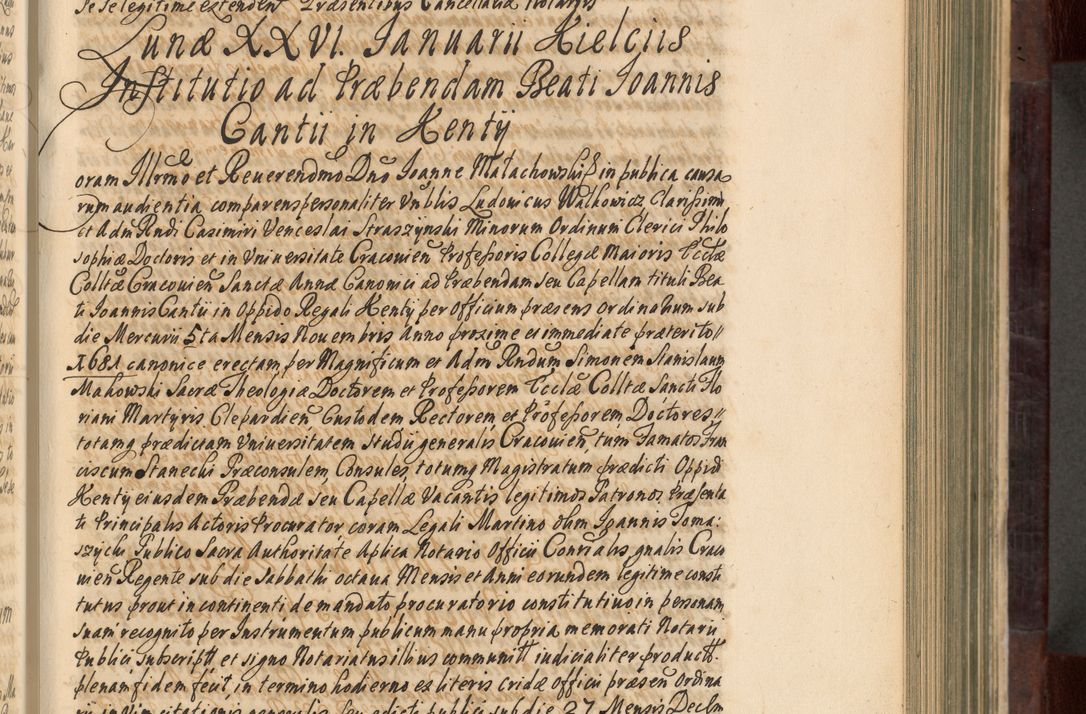 se se legitime extendent Præsentibus Cancellariæ Notariis
Lunæ XXVI. Ianuarii Kielciis
Institutio ad Præbendam Beati Ioannis
Cantii in Kenty
oram Illrmo et Reuerendmo Dno Ioanne Małachowski in publica causa
rum audientia comparens personaliter Nobilis Ludouicus Walkowicz Clarissimi
et Adm Rndi Casimiri Venceslai Straszynski Minorum Ordinum Clerici Philo
sophiæ Doctoris et in Vniuersitate Cracouien Professoris Collegæ Maioris Ecclæ
Colltæ Cracouien Sanctæ Annæ Canonici ad Præbendam seu Capellam tituli Bea
ti Ioannis Cantii in Oppido Regali Kenty per Officium præsens Ordinarium sub
die Mercurii 5ta Mensis Nouembris Anno proxime et immediate præterito
1681 canonice erectam per Magnificum et Adm Rndum Simonem Stanislaum
Makowski Sacræ Theologiæ Doctorem et Professorem Ecclæ Colltæ Sancti Flo
riani Martyris Clepardien Custodem Rectorem et Professorem Doctores
totamq prædictam Vniuersitatem Studii generalis Cracouien, tum Famatos Fran
ciscum Stanecki Præconsulem, Consules, totumq Magistratum prædicti Oppidi
Kenty eiusdem Præbendæ seu Capellæ Vacantis legitimos Patronos Præsenta
ti Principalis Actoris Procurator coram Legali Martino olim Ioannis Toma:
szycki Publico Sacra Authoritate Aplica Notario Officii Contialis gnalis Craco
uien Regente sub die Sabbathi octaua Mensis et Anni eorundem legitime consti
tutus prout in continenti de mandato procuratorio constitutiuo in personam
suam recognito per Instrumentum publicum manu propria memorati Notarii
Publici subscriptt et signo Notariatus illius communitt iudicialiter productt.
plenam fidem fecit in termino hodierno ex literis cridæ officii præsen Ordina
rii in Vim citationis generalis seu edicti publici sub die 27 Mensis Decbm